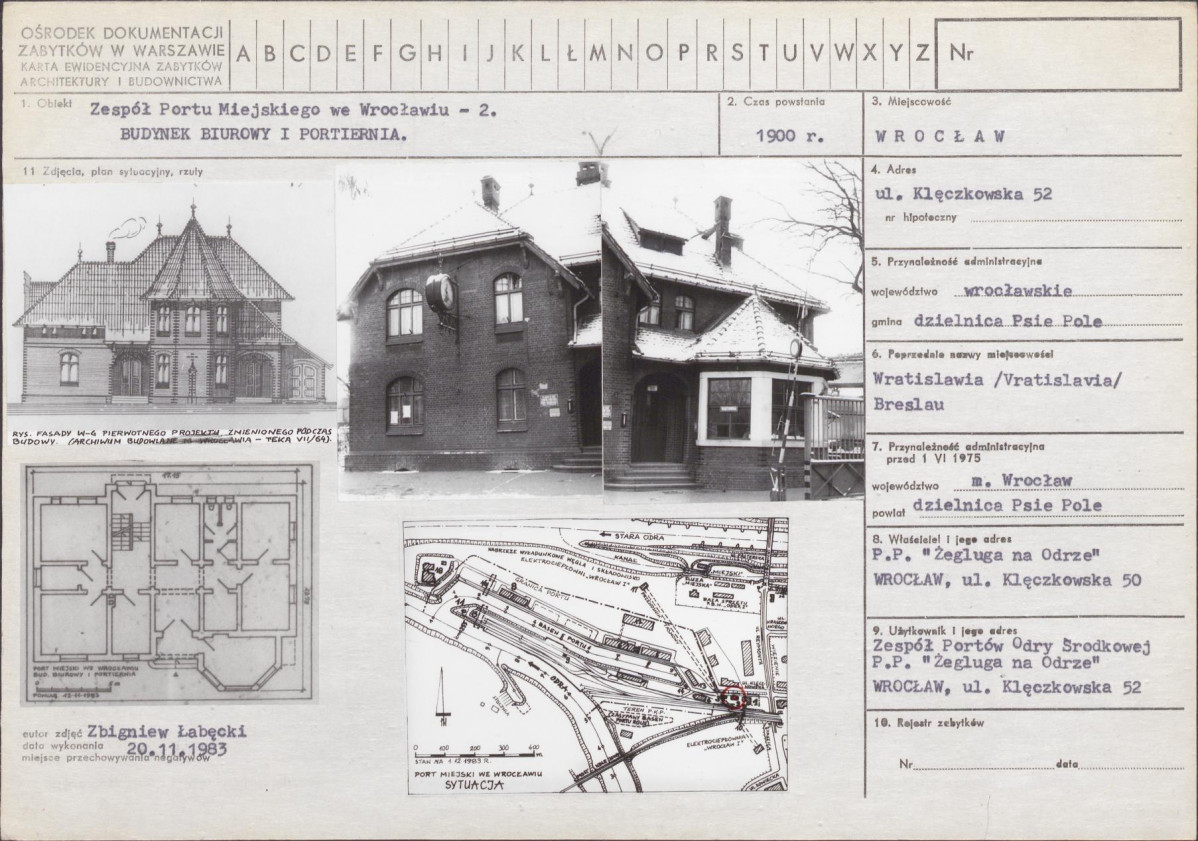 OŚRODEK DOKUMENTACJI
ZABYTKÓW W WARSZAWIE
KARTA EWIDENCYJNA ZABYTKÓW
ARCHITEKTURY I BUDOWNICTWA
A B C D E F G H I J K L Ł M N O P R S T U V W X Y Z
Nr
1. Obiekt Zespół Portu Miejskiego we Wrocławiu - 2.
BUDYNEK BIUROWY I PORTIERNIA.
2. Czas powstania
1900 r.
3. Miejscowość
WROCŁAW
11 Zdjęcia, plan sytuacyjny, rzuty
RYS. FASADY W-G PIERWOTNEGO PROJEKTU, ZMIENIONEGO PODCZAS
BUDOWY. (ARCHIWUM BUDOWLANE M. WROCŁAWIA - TEKA VII/64).
PORT MIEJSKI WE WROCŁAWIU
BUD. BIUROWY I PORTIERNIA
0 5m
POMIAR 12.11.1983
autor zdjęć Zbigniew Łabęcki
data wykonania 20.11.1983
miejsce przechowywania negatywów
STARA ODRA
NABRZEŻE WYŁADUNKOWE WĘGLA I SKŁADOWISKO
ELEKTROCIEPŁOWNI „WROCŁAW I"
KANAŁ
MIEJSKI
ŚLUZA
„MIEJSKA"
GRANICA PORTU
BASEN PORTU
ODRA
TEREN P.K.P.
ZASYPANY BASEN
ELEKTROCIEPŁOWNIA
„WROCŁAW I"
0 100 200 300 400 m.
STAN NA 1.12.1983 R.
PORT MIEJSKI WE WROCŁAWIU
SYTUACJA
4. Adres
ul. Klęczkowska 52
nr hipoteczny
5. Przynależność administracyjna
województwo wrocławskie
gmina dzielnica Psie Pole
6. Poprzednie nazwy miejscowości
Wratislawia /Vratislavia/
Breslau
7. Przynależność administracyjna
przed 1 VI 1975
województwo m. Wrocław
powiat dzielnica Psie Pole
8. Właściciel i jego adres
P.P. "Żegluga na Odrze"
WROCŁAW, ul. Klęczkowska 50
9. Użytkownik i jego adres
Zespół Portów Odry Środkowej
P.P. "Żegluga na Odrze"
WROCŁAW, ul. Klęczkowska 52
10. Rejestr zabytków
Nr data